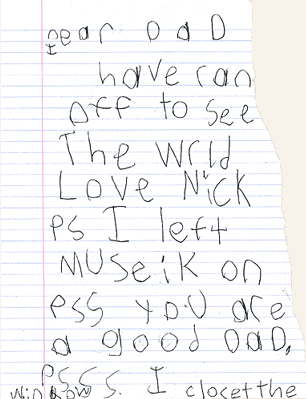 Dear DAD
I
have ran
off to see
The wrld
Love Nick
Ps I left
MUSeik on
PSS you are
a good DaD,
PSSS. I closet the
window